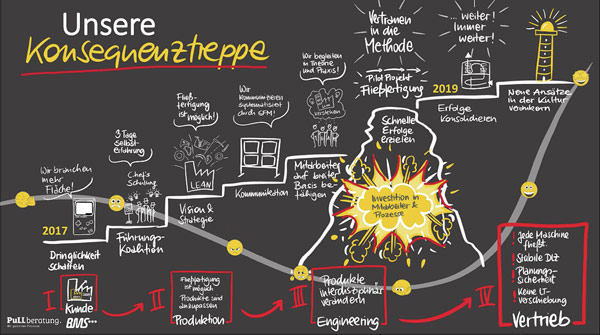 Unsere
Konsequenztreppe
Vertrauen
in die
Methode
... weiter!
Immer
weiter!
Pilot Projekt
Fließfertigung
2019
Erfolge
Konsolidieren
Neue Ansätze
in der Kultur
verankern
Wir begleiten
in Theorie
und Praxis!
verstehen
Schnelle
Erfolge
erzielen
Wir
kommunizieren
systematisiert
durch SFM!
Mitarbeiter
auf breiter
Basis be-
fähigen
Fließ-
fertigung
ist möglich!
LEAN
Kommunikation
3 Tage
Selbst-
erfahrung
Chefs
Schulung
Vision &
Strategie
Wir brauchen
mehr
Fläche!
2017
Führungs-
Koalition
Dringlichkeit
schaffen
Investition in
Mitarbeiter &
Prozesse
I
Kunde
BMS...
II
Fließfertigung
ist möglich
Produkte sind
anzupassen
Produktion
III
Produkte
Interdisziplinär
verändern
Engineering
IV
! Jede Maschine
fließt.
! Stabile DLZ
! Planungs-
sicherheit
! Keine LT-
Verschiebung
Vertrieb
PuLL beratung.